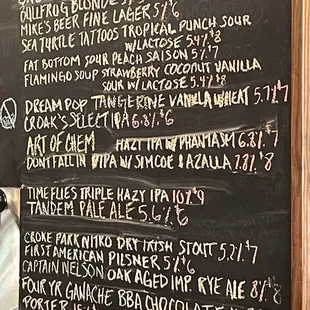 BULLFROG BLONDE 5% $
MIKE'S BEER FINE LAGER 5% $6
SEA TURTLE TATTOOS TROPICAL PUNCH SOUR
W/LACTOSE 5.4% $8
FAT BOTTOM SOUR PEACH SAISON 5% $7
FLAMINGO SOUP STRAWBERRY COCONUT VANILLA
SOUR W/LACTOSE 5.4% $8
DREAM POP TANGERINE VANILLA WHEAT 5.7% $7
CROAK'S SELECT IPA 6.8% $6
ART OF CHEM HAZY IPA W/PHANTASM 6.8% $7
DON'T FALL IN DIPA W/ SIMCOE & AZALLA 7.8% $8
TIME FLIES TRIPLE HAZY IPA 10% $9
TANDEM PALE ALE 5.6% $6
CROKE PARK NITRO DRY IRISH STOUT 5.2% $7
FIRST AMERICAN PILSNER 5% $6
CAPTAIN NELSON OAK AGED IMP. RYE ALE 8% $8
FOUR YR GANACHE BBA CHOCOLATE
PORTER